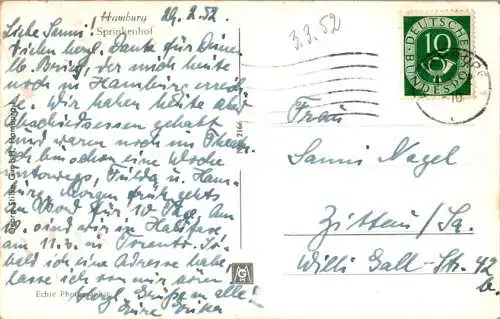 Hamburg
Sprinkenhof
29.2.52
Liebe Sanni!
Vielen herzl. Dank für Deinen
lb. Brief, der mich heute
noch in Hamburg erreichte.
Wir haben heute
Abschiedsessen gehabt
und waren noch im Theater.
Ich bin schon eine Woche
unterwegs, Fulda u. Ham-
burg. Morgen früh gehts
an Bord für 10 Tage. Am
10. sind wir in Halifax
am 11.3. in Toronto. So-
bald ich eine Adresse habe
lasse ich von mir hören
Herzl. Grüße an alle!
Eure Erika
Echte Photographie
2166
3.3.52
DEUTSCHE
BUNDESPOST
10
Frau
Sanni Nagel
Zittau/Sa.
Willi Gall-Str. 42
b.